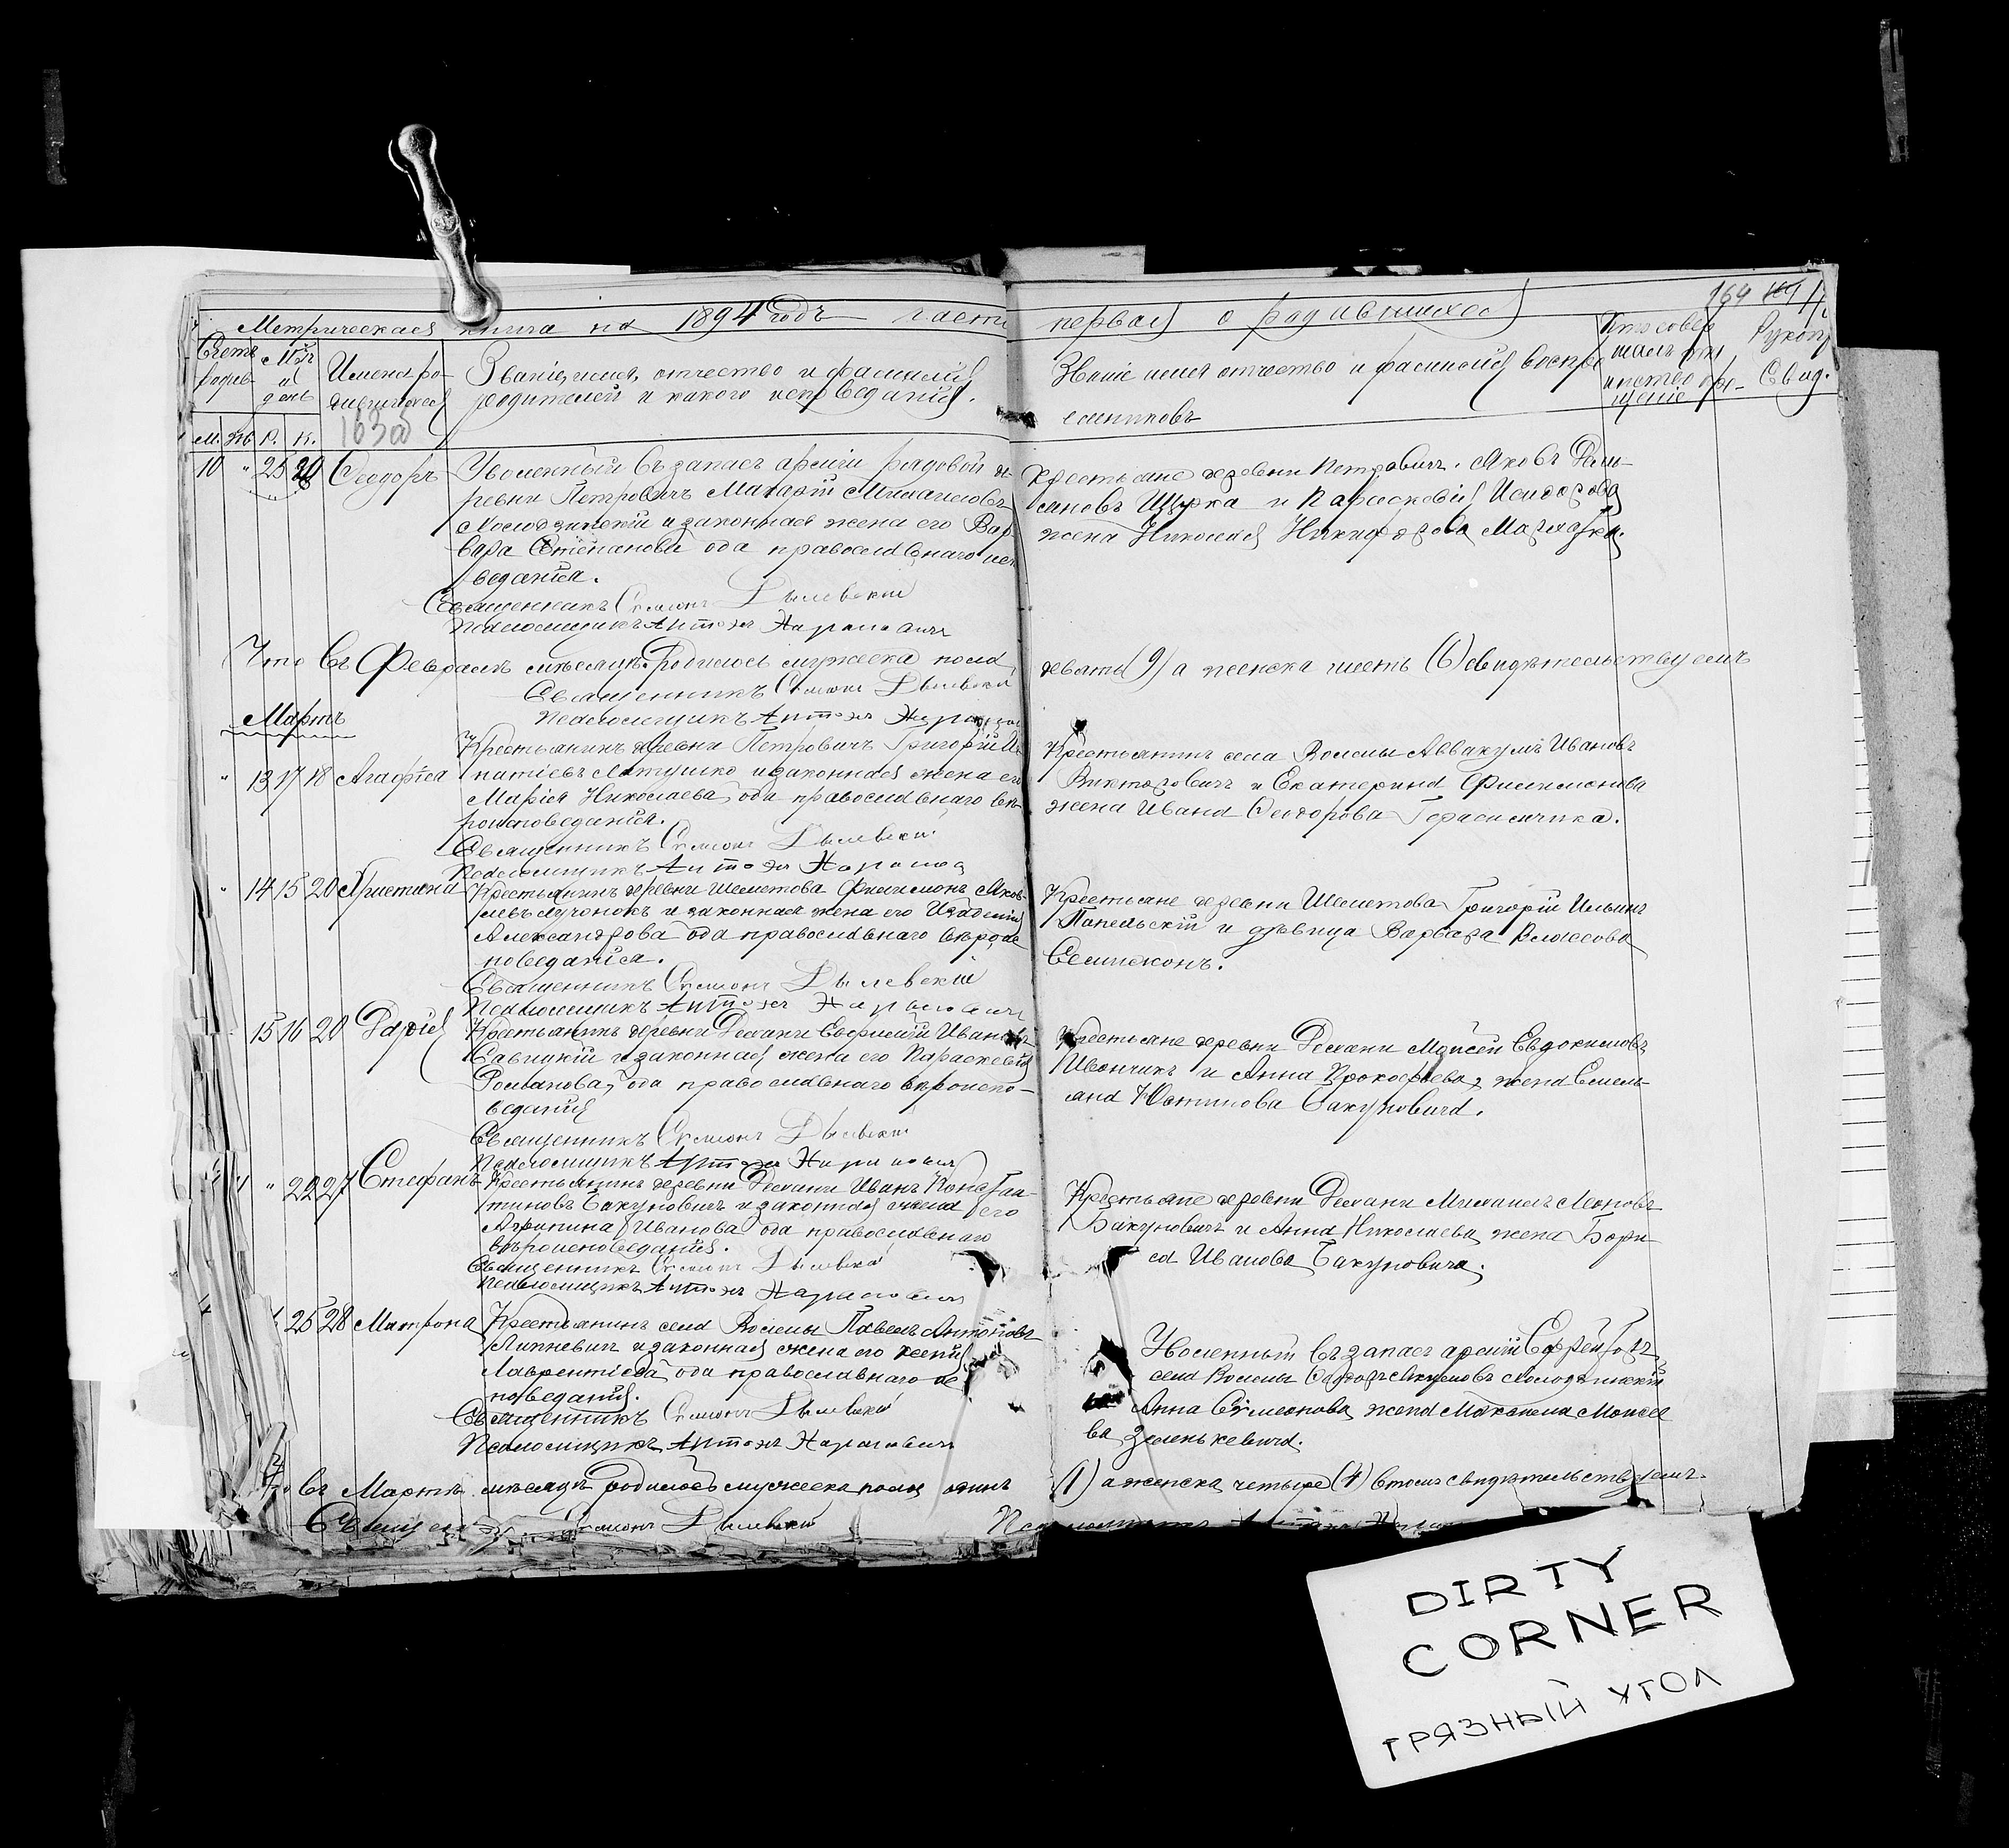 Метрическая книга на 1894 годъ части первая о родившихся
164
Счетъ родив-
Мѣс. и день
Имена ро-
дившихся
163об
Званіе, имя, отчество и фамилія
родителей и какого исповѣданія.
Званіе имя отчество и фамилія воспрі
емниковъ
Кто совер
шалъ
Рукопр
Свид.
М. Ж Р. К.
10 " 25 28 Ѳеодоръ
Уволенный въ запасъ арміи рядовой де-
ревни Петровичъ Макарій Михаиловъ
Холодзинскій и законная жена его Вар
вара Степанова оба православнаго исп
веданія.
Священникъ Симеонъ Дылевскій
Псаломщикъ Антоній
Крестьяне деревни Петровичъ. Яковъ Дам-
іановъ Щурка и Параскевія Исидорова
жена Николая Никифорова
Что въ Февралѣ мѣсяцѣ родилось мужеска пола
девять (9) а женска шесть (6) свидѣтельствуемъ
Священникъ Симеонъ Дылевскій
Псаломщикъ Антоній
Мартъ
" 13 17 18 Агафія
Крестьянинъ деревни Петровичъ Григорій Иг
натіевъ Латушко и законная жена его
Марія Николаева, оба православнаго вѣ-
роисповеданія.
Священникъ Симеонъ Дылевскій
Псаломщикъ Антоній
Крестьянинъ села Волмы Аввакумъ Ивановъ
Викторовичъ и Екатерина Филимонова
жена Ивана Ѳеодорова Герасимчика.
" 14 15 20 Христина
Крестьянинъ деревни Шеметова Филимонъ Яков-
левъ Лучонокъ и законная жена его
Александрова оба православнаго вѣроис
поведанія.
Священникъ Симеонъ Дылевскій
Псаломщикъ Антоній
Крестьяне деревни Шеметова Григорій Ильинъ
и дѣвица Варвара Власова
15 16 20 Дарія
Крестьянинъ деревни Деханы Евфимій Ивановъ
Савицкій и законная жена его Параскевія
Романова, оба православнаго вѣроиспо-
веданія
Священникъ Симеонъ Дылевскій
Псаломщикъ Антоній
Крестьяне деревни Деханы Моисей Евдокимовъ
Ивончикъ и Анна Прокофьева, жена Емель-
яна Юстинова Бакуновича.
" 22 27 Стефанъ
Крестьянинъ деревни Деханы Иванъ Констан-
тиновъ Бакуновичъ и законная жена его
Агрипина Иванова оба православнаго
вѣроисповеданія.
Священникъ Симеонъ Дылевскій
Псаломщикъ Антоній
Крестьяне деревни Деханы Михаилъ Леоновъ
Бакуновичъ и Анна Николаева, жена Бори
са Иванова Бакуновича.
25 28 Матрона
Крестьянинъ села Волмы Павелъ Антоновъ
Липневичъ и законная жена его Ксенія
Лаврентіева оба православнаго ис
поведанія.
Священникъ Симеонъ Дылевскій
Псаломщикъ Антоній
Уволенный въ запасъ арміи Ефрейторъ
села Волмы Холодзинскій
Анна Симеонова, жена Моисее
ва Зеленкевича.
въ Мартѣ мѣсяцѣ родилось мужеска пола одинъ
(1) а женска четыре (4) въ томъ свидѣтельствуемъ.
Симеонъ Дылевскій
DIRTY
CORNER
ГРЯЗНЫЙ УГОЛ